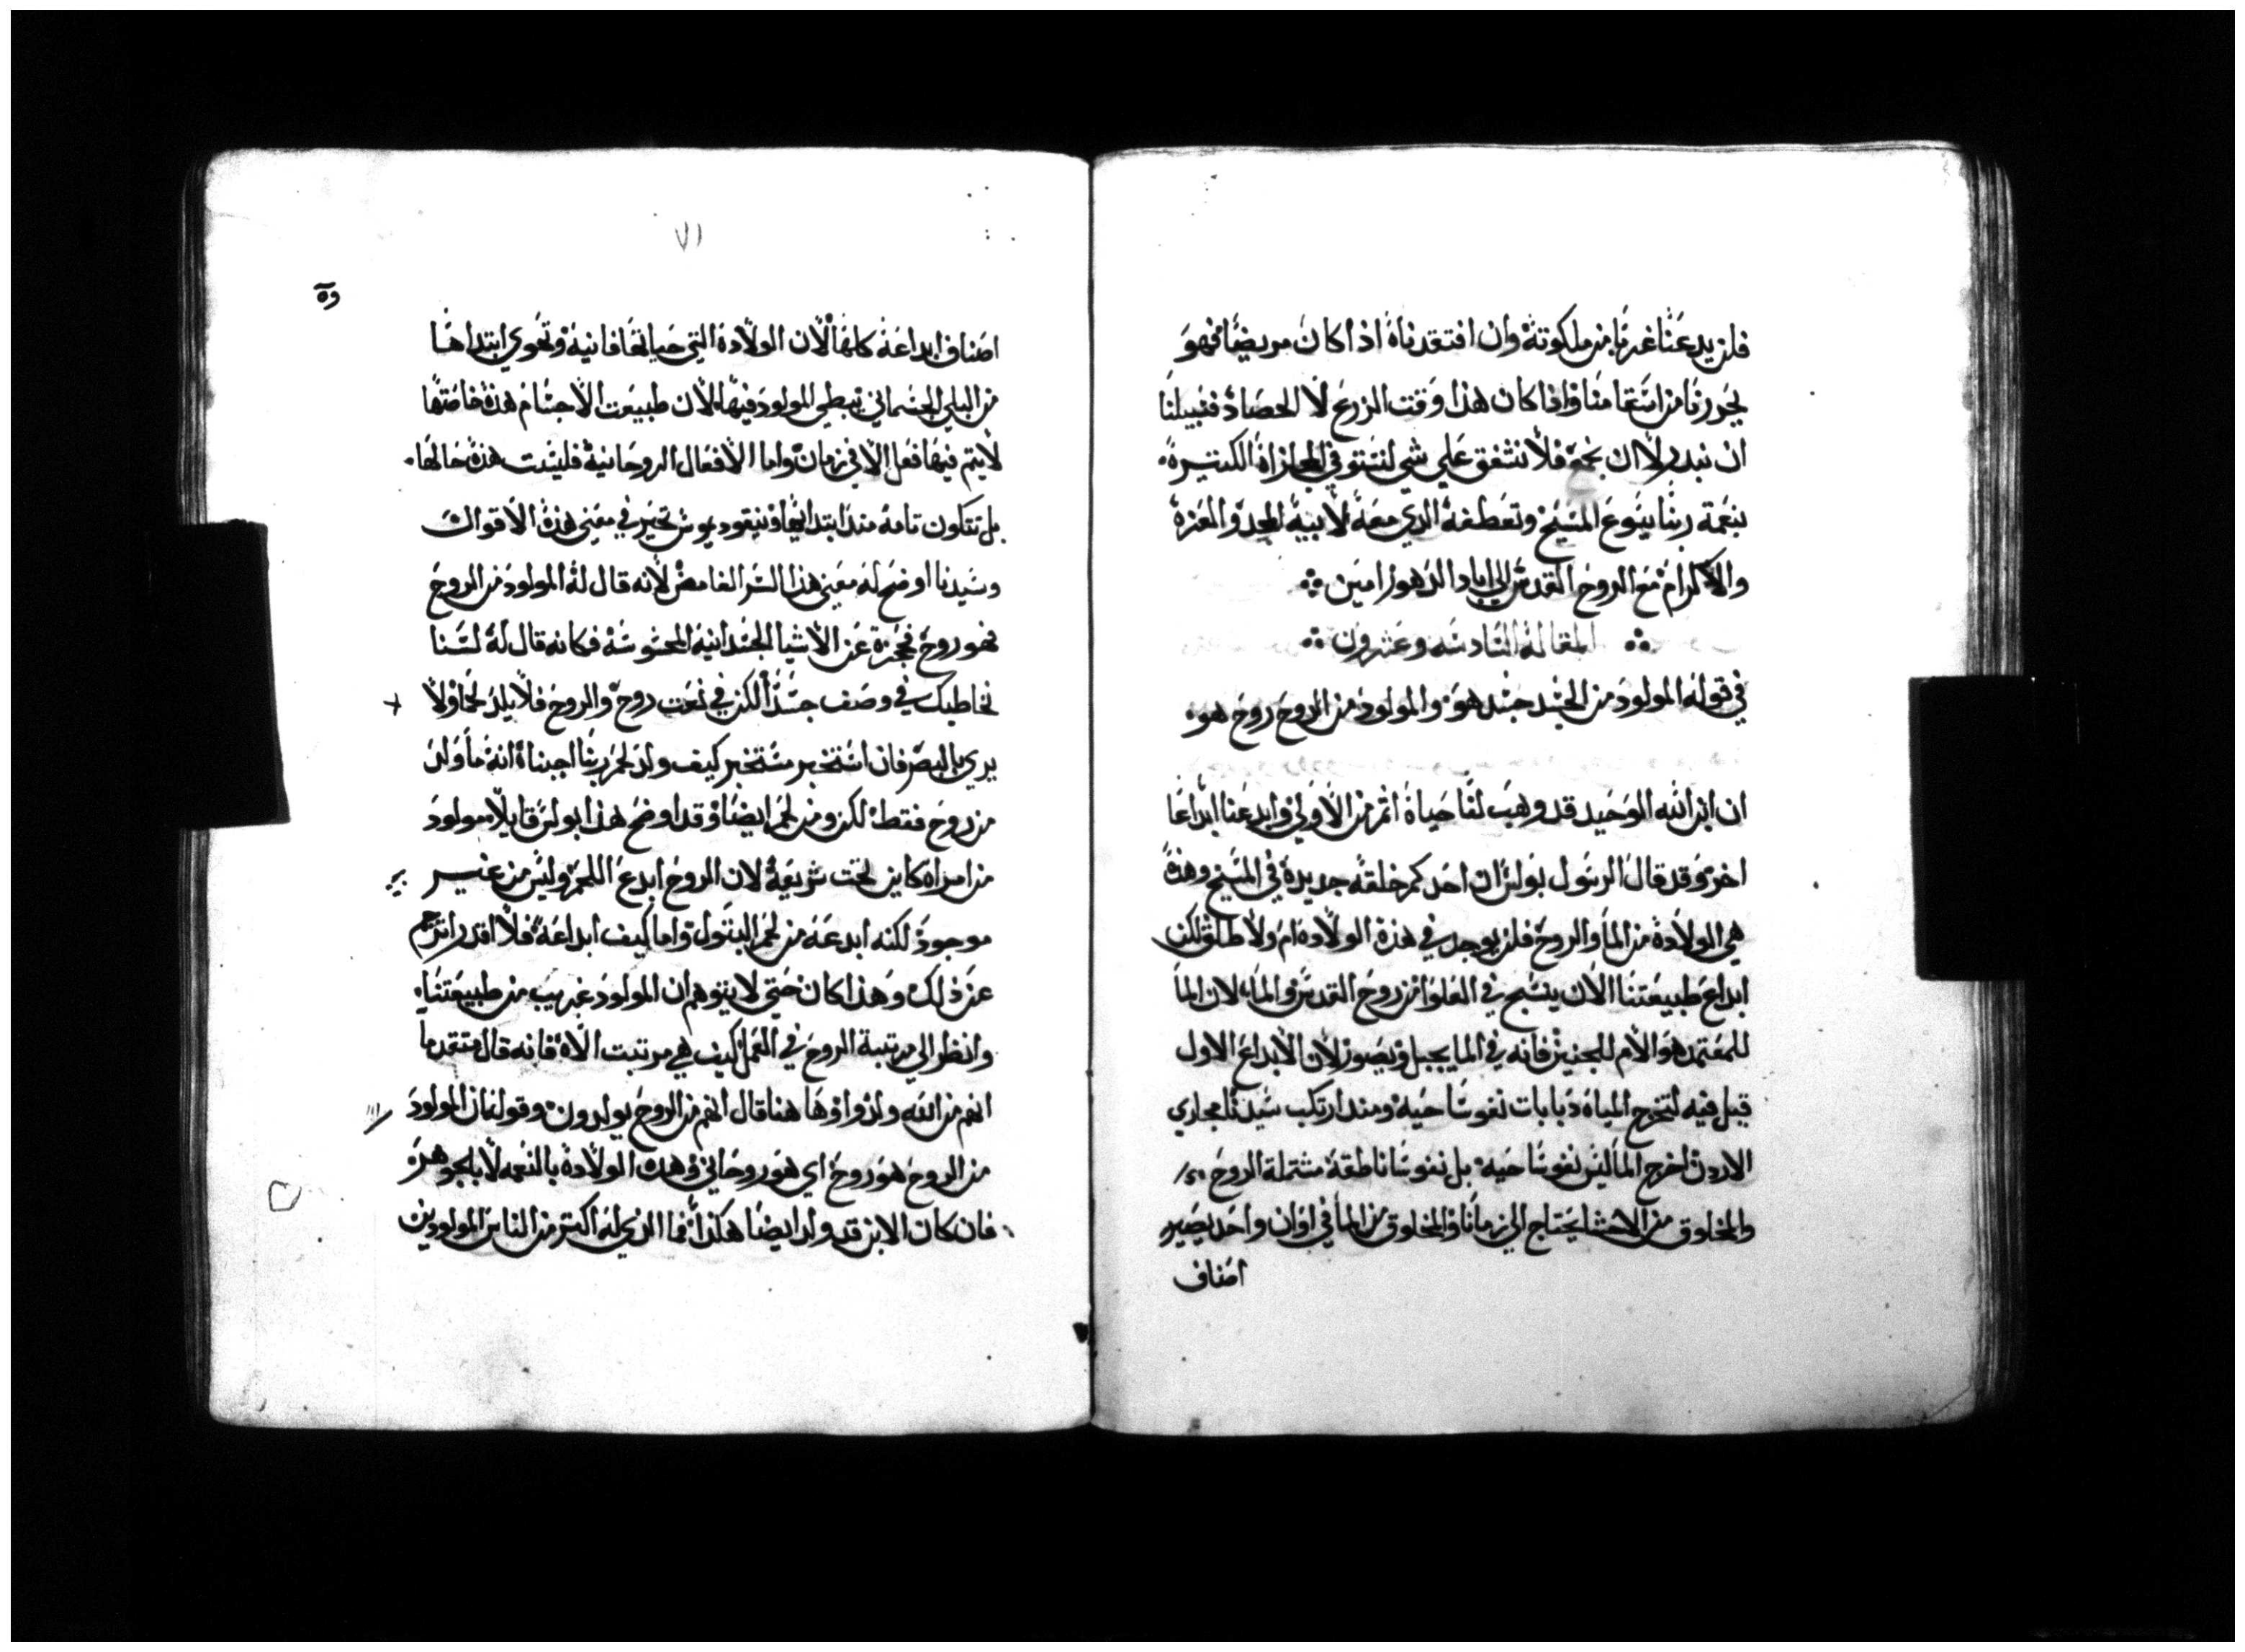 فلن يدعنا غربا من ملكوته وان افتقدناه اذا كان مريضا فهو
يحررنا من اسقامنا واذا كان هذا وقت الزرع لا الحصاد فسبيلنا
ان نبدر لا ان نجمع فلا نشفق علي شي لنستوفي المجازاه الكتيره
بنعمة ربنا يسوع المسيح وتعطفه الدي معه لابيه المجد والعزه
والاكرام مع الروح القدس الي اباد الدهور امين
المقاله السادسه وعشرون
في قوله المولود من الجسد جسد هو والمولود من الروح روح هو
ان ابن الله الوحيد قد وهب لنا حياه اتم من الاولي وابدعنا ابداعا
اخر وقد قال الرسول بولس ان احدكم خلقه جديده في المسيح وهذه
هي الولاده من الما والروح فلن يوجد في هذه الولاده ام ولا طلق لكن
ابداع طبيعتنا الان ينسج في العلو من روح القدس والما لان الما
للمعتمد هو الام للجنين فانه في الما يجبل ويصور لان الابداع الاول
قيل فيه لتخرج المياه دبابات نفوسا حيه ومند ارتكب سيدنا مجاري
الاردن اخرج الما ليس نفوسا حيه بل نفوسا ناطقه مشتمله الروح
والمخلوق من الاحشا يحتاج الي زمانا والمخلوق من الما في اوان واحد يصير
اصناف
٧١
وه
اصناف ابداعه كلها لان الولاده التي حياتها فانيه وتحوي ابتداها
من البلي الجسماني تبطي المولود فيها لان طبيعت الاجسام هذه خاصتها
لا يتم فيها فعل الا في زمان واما الافعال الروحانيه فليست هذه حالها
بل تتكون تامه مند ابتدايها ونيقوديموش تحير في معني هذه الاقوال
وسيدنا اوضح له معني هذا السر الغامض لانه قال له المولود من الروح
فهو روح فحجزه عن الاشيا الجسدانيه المحسوسه فكانه قال له لسنا
نخاطبك في وصف جسدا لكن في نعت روح والروح فلا يلد لحما ولا
يري بالبصر فان استخبر مستخبر كيف ولد لحم ربنا اجبناه انه ما ولد
من روح فقط لكن ومن لحم ايضا وقد اوضح هذا بولس قايلا مولود
من امراه كاين تحت شريعه لان الروح ابدع اللحم وليس من غير
موجود لكنه ابدعه من لحم البتول واما كيف ابداعه فلا اقدر اترجم
عن ذلك وهذا كان حتي لا يتوهم ان المولود غريب من طبيعتنا
وانظر الي مرتبة الروح في العمل كيف هي مرتبت الاه فانه قال متقدما
انهم من الله ولدوا وها هنا قال انهم من الروح يولدون وقوله ان المولود
من الروح هو روح اي هو روحاني وهده الولاده بالنعمه لا بالجوهر
فان كان الابن قد ولد ايضا هكذا فما الذي له اكتر من الناس المولودين